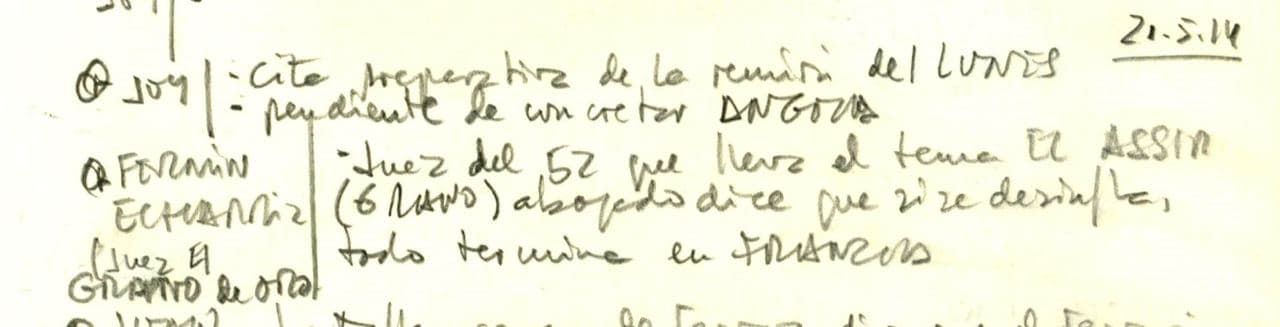 21.5.14
JOY - Cita preparativa de la reunión del LUNES
- pendiente de concretar ANGOLA
FERMÍN - Juez del 52 que lleva el tema EL ASSIR
ECHARRI (GRANO) abogado dice que si se desinfla,
(Juez El todo termina en FRANCIA
GRANO de ORO)